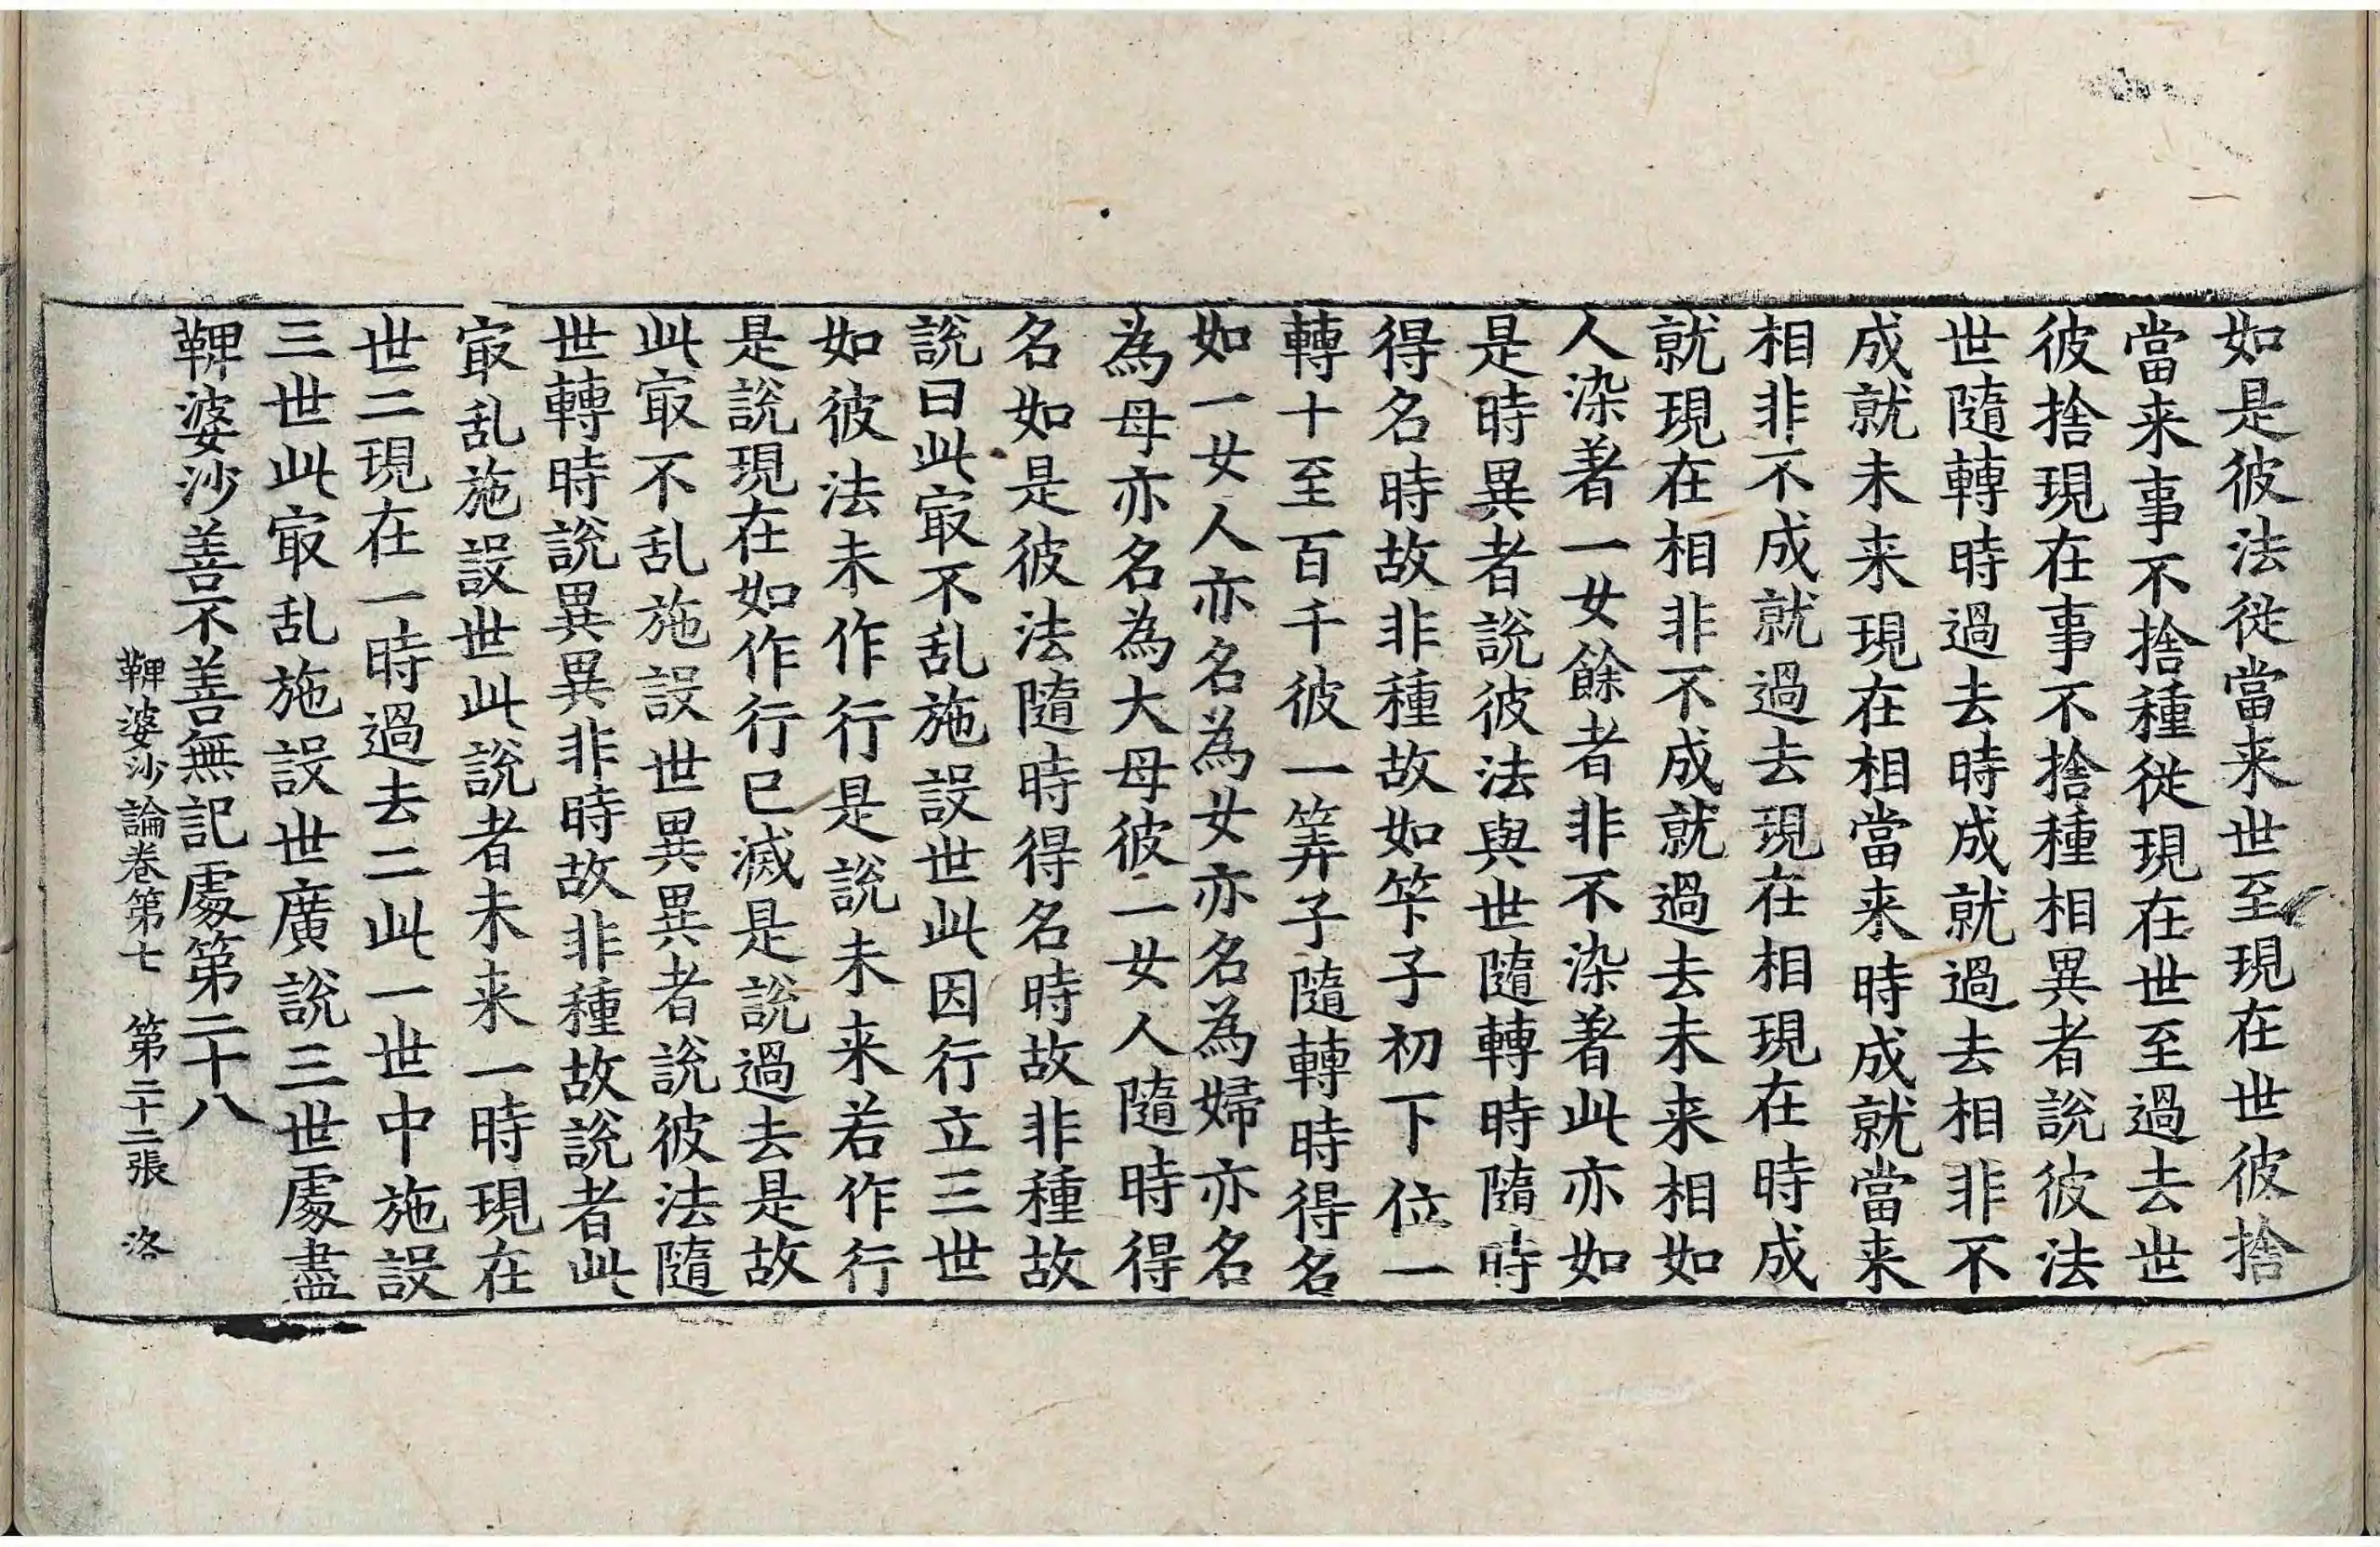 如是彼法從當来世至現在世彼捨
當来事不捨種從現在世至過去世
彼捨現在事不捨種相異者說彼法
世隨轉時過去時成就過去相非不
成就未来現在相當来時成就當来
相非不成就過去現在相現在時成
就現在相非不成就過去未来相如
人染著一女餘者非不染著此亦如
是時異者說彼法與世隨轉時隨時
得名時故非種故如笇子初下位一
轉十至百千彼一筭子隨轉時得名
如一女人亦名為女亦名為婦亦名
為母亦名為大母彼一女人隨時得
名如是彼法隨時得名時故非種故
說曰此㝡不乱施設世此因行立三世
如彼法未作行是說未来若作行
是說現在如作行已滅是說過去是故
此㝡不乱施設世異異者說彼法隨
世轉時說異異非時故非種故說者此
㝡乱施設世此說者未来一時現在
世二現在一時過去二此一世中施設
三世此㝡乱施設世廣說三世處盡
鞞婆沙善不善無記處第二十八
鞞婆沙論卷第七 第二十二張 洛